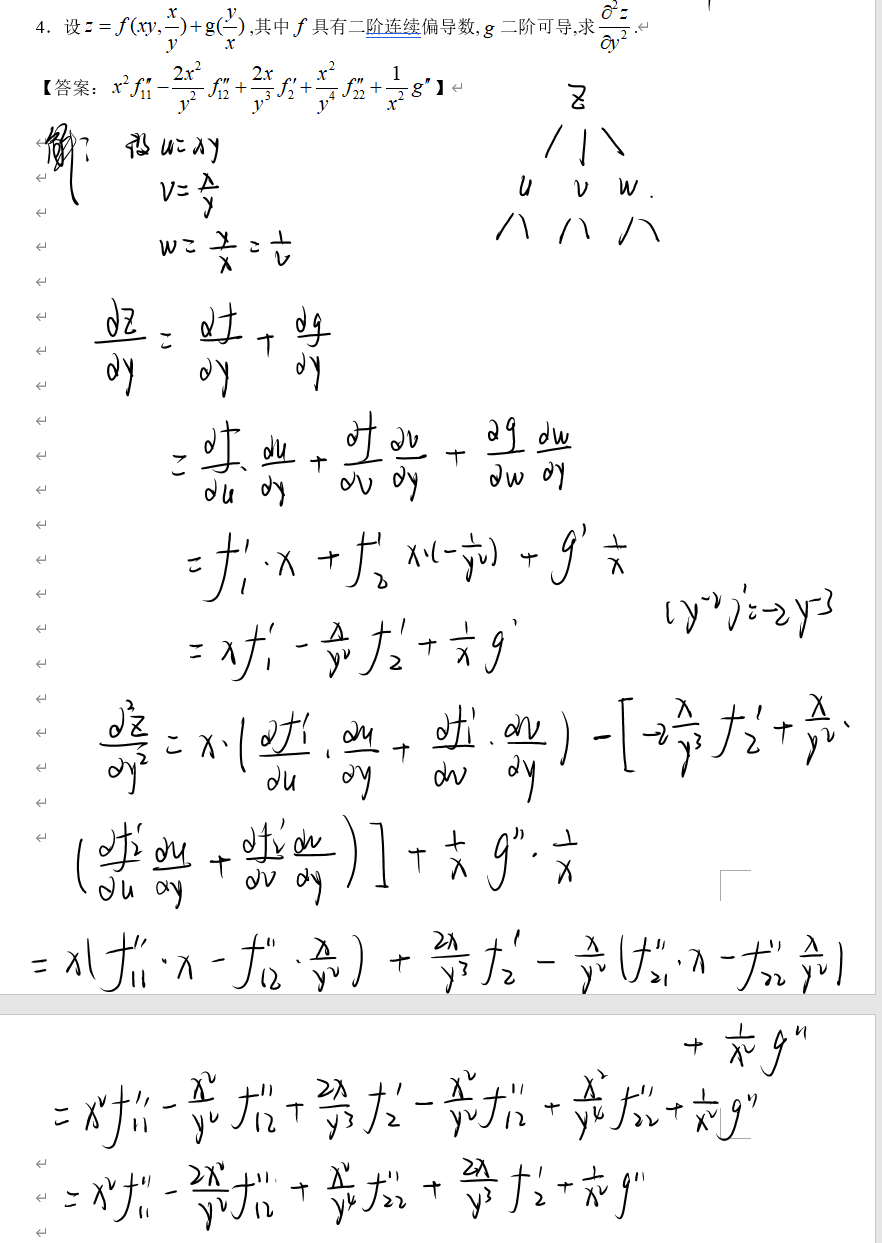 4. 设 z = f(xy, x/y) + g(y/x) ,其中 f 具有二阶连续偏导数, g 二阶可导,求 ∂²z/∂y² .
【答案: x² f″₁₁ − 2x²/y² f″₁₂ + 2x/y³ f′₂ + x²/y⁴ f″₂₂ + 1/x² g″ 】
解: 设 u = xy
v = x/y
w = y/x = 1/v
z
u v w .
∂z/∂y = ∂f/∂y + ∂g/∂y
= ∂f/∂u · ∂u/∂y + ∂f/∂v ∂v/∂y + ∂g/∂w ∂w/∂y
= f′₁ · x + f′₂ x·(−1/y²) + g′ 1/x
= x f′₁ − x/y² f′₂ + 1/x g′
(y⁻²)′ = −2y⁻³
∂²z/∂y² = x · (∂f′₁/∂u · ∂u/∂y + ∂f′₁/∂v · ∂v/∂y) − [−2 x/y³ f′₂ + x/y² ·
(∂f′₂/∂u ∂u/∂y + ∂f′₂/∂v ∂v/∂y)] + 1/x g″ · 1/x
= x(f″₁₁ · x − f″₁₂ · x/y²) + 2x/y³ f′₂ − x/y² (f″₂₁ · x − f″₂₂ x/y²)
+ 1/x² g″
= x² f″₁₁ − x²/y² f″₁₂ + 2x/y³ f′₂ − x²/y² f″₁₂ + x²/y⁴ f″₂₂ + 1/x² g″
= x² f″₁₁ − 2x²/y² f″₁₂ + x²/y⁴ f″₂₂ + 2x/y³ f′₂ + 1/x² g″